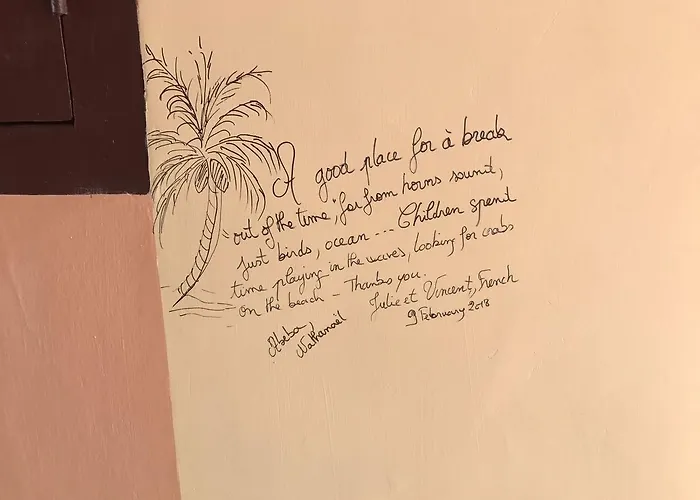 A good place for à break
"out of the time", far from horns sound,
Just birds, ocean --- Children spend
time playing in the waves, looking for crabs
on the beach - Thanks you.
Julie et Vincent, French
9 February 2018
Nathanaël